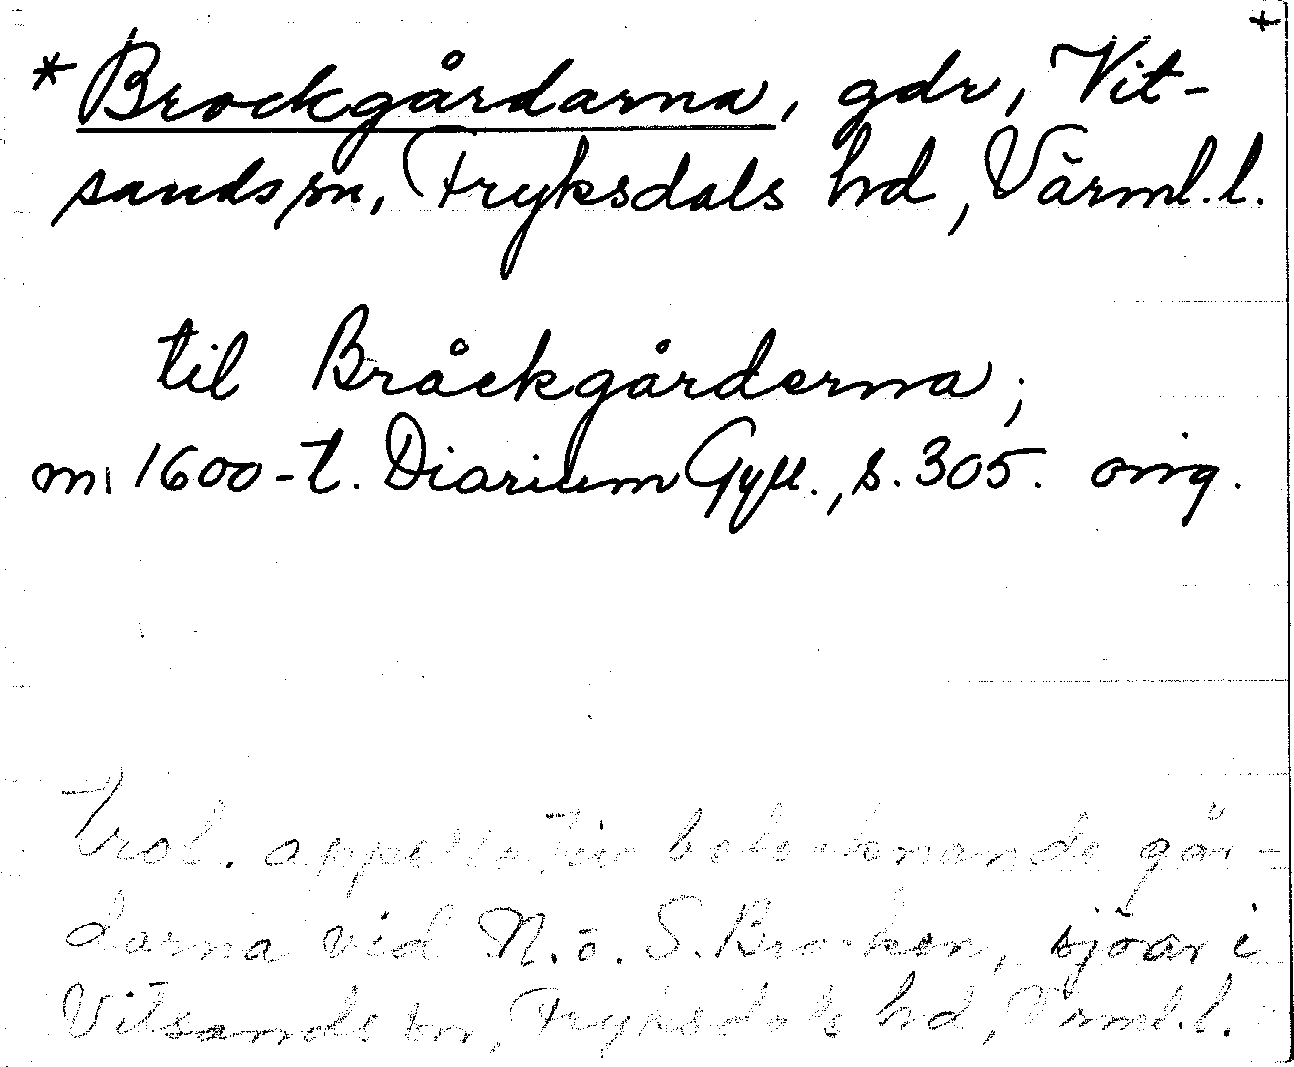 +
* Brockgårdarna, gdr, Vit-
sands sn, Fryksdals hd, Värml. l.
til Bråckgårderna;
m. 1600-t. Diarium Gyll., s. 305. orig.
trol. appellativ betecknande går-
darna vid N. o. S. Brocken, sjöar i
Vitsands sn, Fryksdals hd, Värml. l.